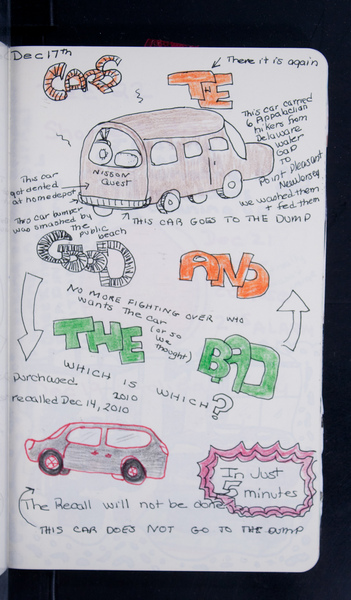 Dec 17th
There it is again
CARS
THE
This car carried
6 Appalachian
hikers from
Delaware
Water
Gap
TO
Point Pleasant
New Jersey
we washed them
+ fed them
NISSON
Quest
This car
got dented
at home depot
This car bumper
was smashed by
the
public
beach
THIS CAR GOES TO THE DUMP
GOOD
AND
NO MORE FIGHTING OVER WHO
wants the car
(or so
we
thought)
THE
BAD
WHICH IS
WHICH?
Purchased 2010
recalled Dec 14, 2010
In Just
5 minutes
The Recall will not be done
THIS CAR DOES NOT GO TO THE DUMP